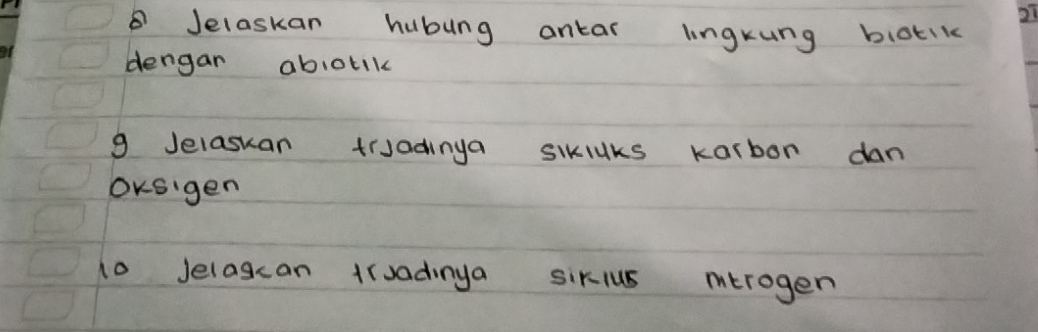 8 Jelaskan hubung antar lingkung biotik
dengan abiotik
9 Jelaskan trjadinya sikluks karbon dan
Oksigen
10 Jelagcan trjadinya siklus nitrogen